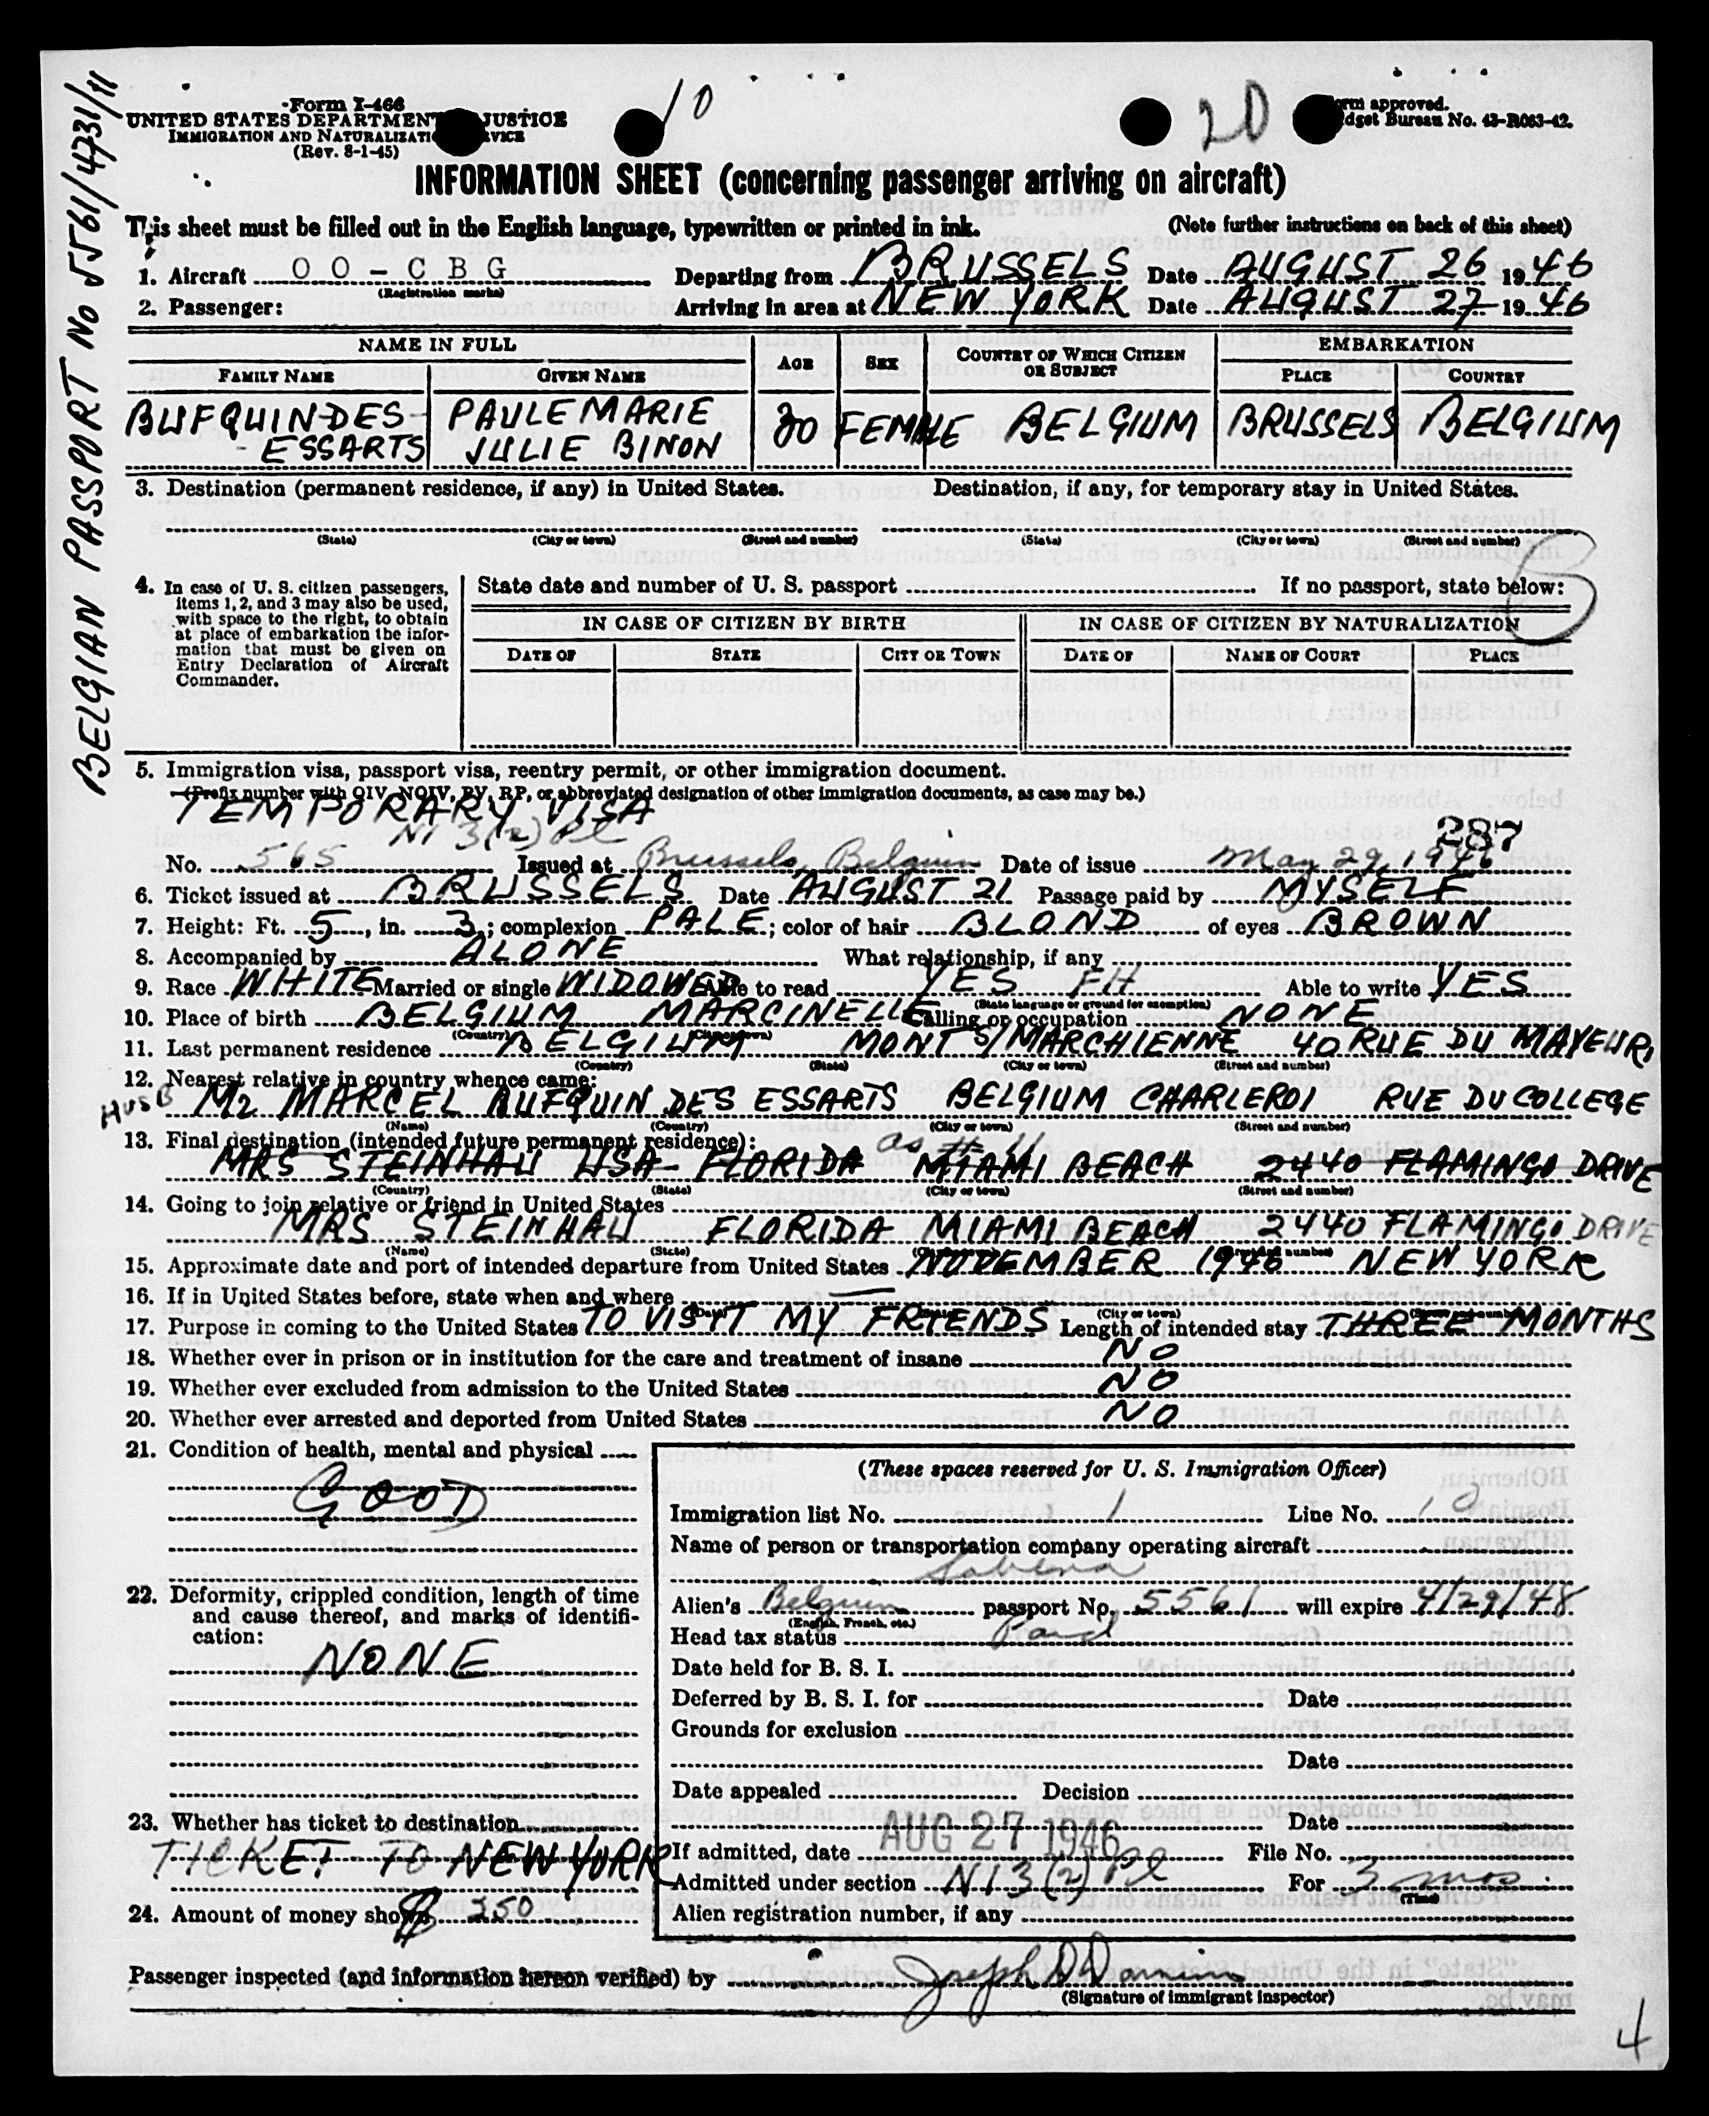 BELGIAN PASSPORT No 5561/4731/11
Form I-466
UNITED STATES DEPARTMENT JUSTICE
IMMIGRATION AND NATURALIZATI RVICE
(Rev. 8-1-45)
10
20
rm approved.
dget Bureau No. 43-R063-42.
INFORMATION SHEET (concerning passenger arriving on aircraft)
This sheet must be filled out in the English language, typewritten or printed in ink. (Note further instructions on back of this sheet)
1. Aircraft OO-CBG Departing from BRUSSELS Date AUGUST 26 1946
(Registration marks)
2. Passenger: Arriving in area at NEW YORK Date AUGUST 27 1946
NAME IN FULL AGE SEX COUNTRY OF WHICH CITIZEN OR SUBJECT EMBARKATION
FAMILY NAME GIVEN NAME PLACE COUNTRY
BUFQUIN-DES- PAULE MARIE 30 FEMALE BELGIUM BRUSSELS BELGIUM
-ESSARTS JULIE BINON
3. Destination (permanent residence, if any) in United States. Destination, if any, for temporary stay in United States.
(State) (City or town) (Street and number) (State) (City or town) (Street and number)
4. In case of U. S. citizen passengers, items 1, 2, and 3 may also be used, with space to the right, to obtain at place of embarkation the information that must be given on Entry Declaration of Aircraft Commander.
State date and number of U. S. passport If no passport, state below:
IN CASE OF CITIZEN BY BIRTH IN CASE OF CITIZEN BY NATURALIZATION
DATE OF STATE CITY OR TOWN DATE OF NAME OF COURT PLACE
5. Immigration visa, passport visa, reentry permit, or other immigration document.
(Prefix number with QIV, NQIV, PV, RP, or abbreviated designation of other immigration documents, as case may be.)
TEMPORARY VISA
NI 3(2) Pl
287
No. 565 Issued at Brussels, Belgium Date of issue May 29, 1946
6. Ticket issued at BRUSSELS Date AUGUST 21 Passage paid by MYSELF
7. Height: Ft. 5, in. 3; complexion PALE; color of hair BLOND of eyes BROWN
8. Accompanied by ALONE What relationship, if any
9. Race WHITE Married or single WIDOWED Able to read YES FH Able to write YES
(State language or ground for exemption)
10. Place of birth BELGIUM MARCINELLE Calling or occupation NONE
(Country) (City or town)
11. Last permanent residence BELGIUM MONT S/MARCHIENNE 40 RUE DU MAYEUR
(Country) (State) (City or town) (Street and number)
12. Nearest relative in country whence came:
HUSB MR MARCEL BUFQUIN DES ESSARTS BELGIUM CHARLEROI RUE DU COLLEGE
(Name) (Country) (City or town) (Street and number)
13. Final destination (intended future permanent residence): as # 11
MRS STEINHAU USA FLORIDA MIAMI BEACH 2440 FLAMINGO DRIVE
(Country) (State) (City or town) (Street and number)
14. Going to join relative or friend in United States
MRS STEINHAU FLORIDA MIAMI BEACH 2440 FLAMINGO DRIVE
(Name) (State) (City or town) (Street and number)
15. Approximate date and port of intended departure from United States NOVEMBER 1946 NEW YORK
16. If in United States before, state when and where —
(Date) (State) (City or town) (Street and number)
17. Purpose in coming to the United States TO VISIT MY FRIENDS Length of intended stay THREE MONTHS
18. Whether ever in prison or in institution for the care and treatment of insane NO
19. Whether ever excluded from admission to the United States NO
20. Whether ever arrested and deported from United States NO
21. Condition of health, mental and physical
GOOD
22. Deformity, crippled condition, length of time and cause thereof, and marks of identification:
NONE
23. Whether has ticket to destination
TICKET TO NEW YORK
24. Amount of money shown $ 350
(These spaces reserved for U. S. Immigration Officer)
Immigration list No. 1 Line No. 10
Name of person or transportation company operating aircraft
Sabena
Alien's Belgium passport No. 5561 will expire 4/29/48
(English, French, etc.)
Head tax status Paid
Date held for B. S. I.
Deferred by B. S. I. for Date
Grounds for exclusion
Date
Date appealed Decision
Date
If admitted, date AUG 27 1946 File No.
Admitted under section NI 3(2) Pl For 3 mos
(Time)
Alien registration number, if any
Passenger inspected (and information hereon verified) by Joseph D
(Signature of immigrant inspector)
4